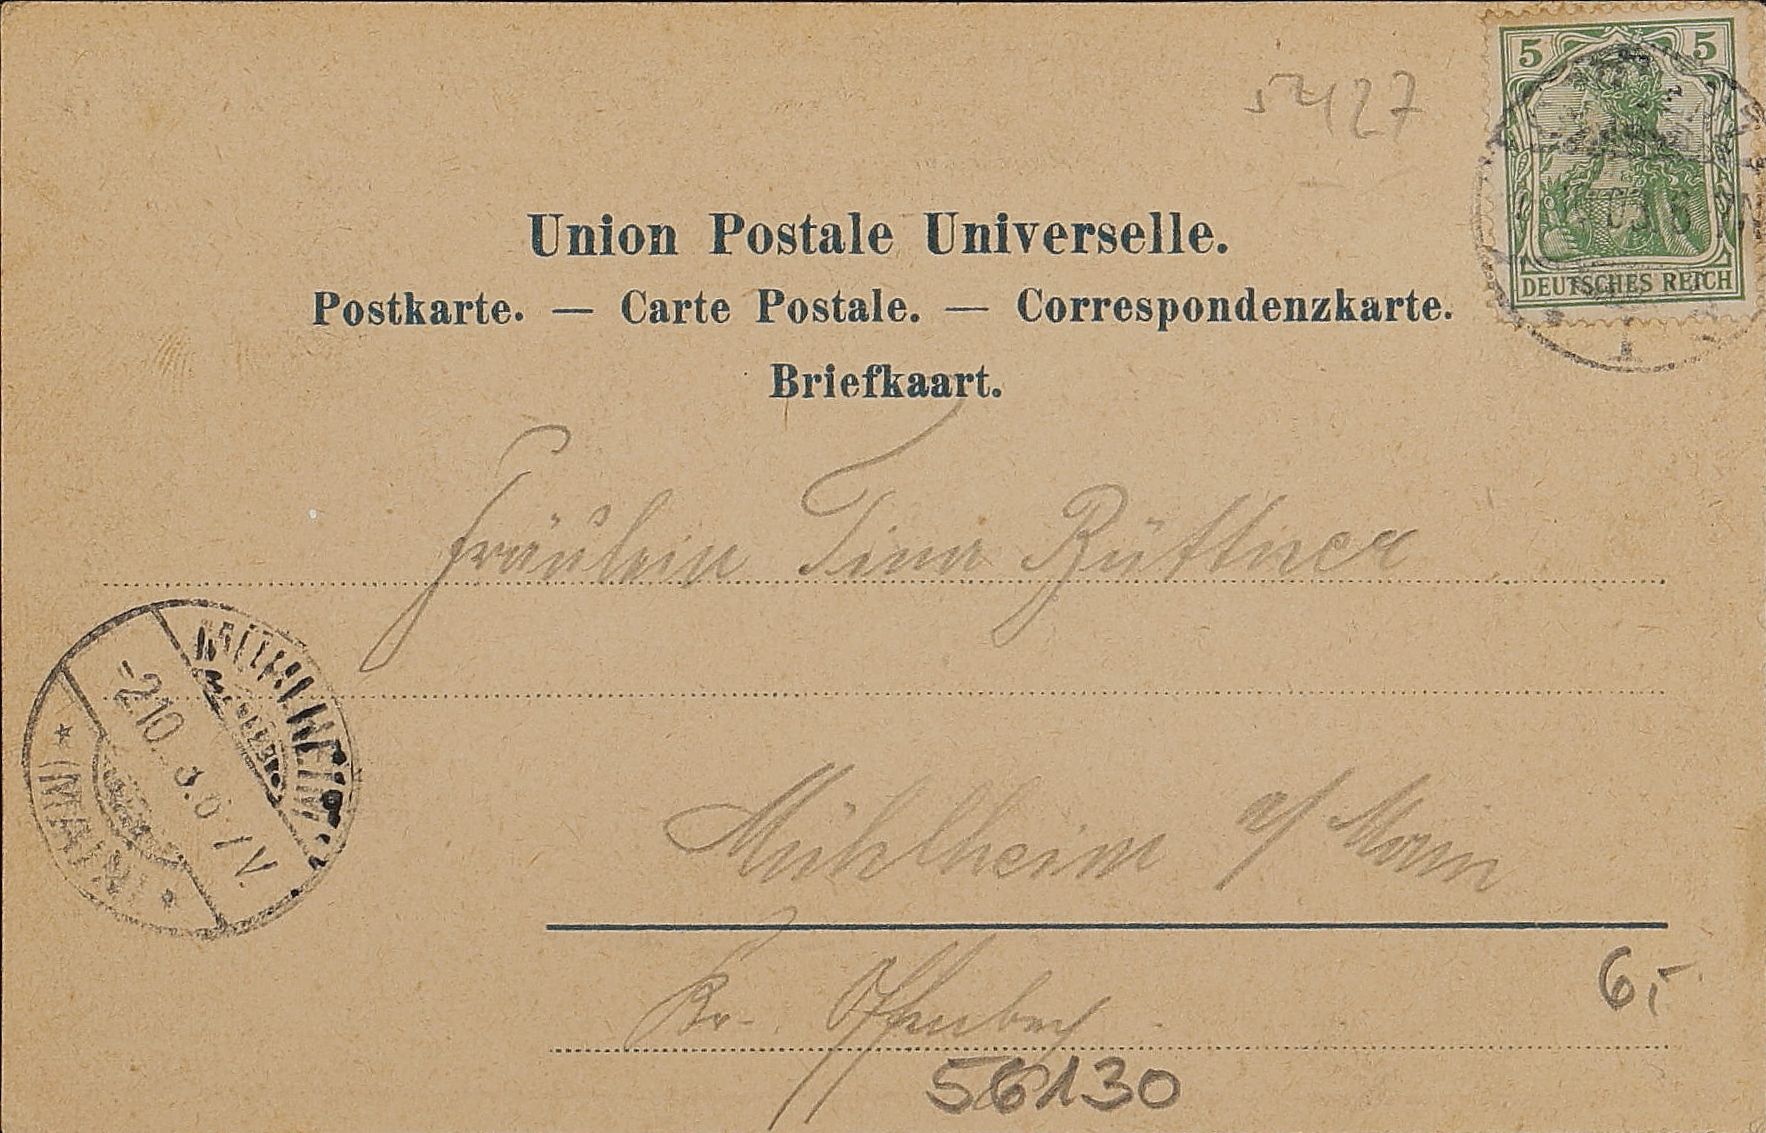 5427
5 5
DEUTSCHES REICH
Union Postale Universelle.
Postkarte. — Carte Postale. — Correspondenzkarte.
Briefkaart.
Fräulein Tina Büttner
MÜHLHEIM
-2.10. 7 V.
(MAIN)
Mühlheim a/ Main
Kr. Offenbach
6,-
56130